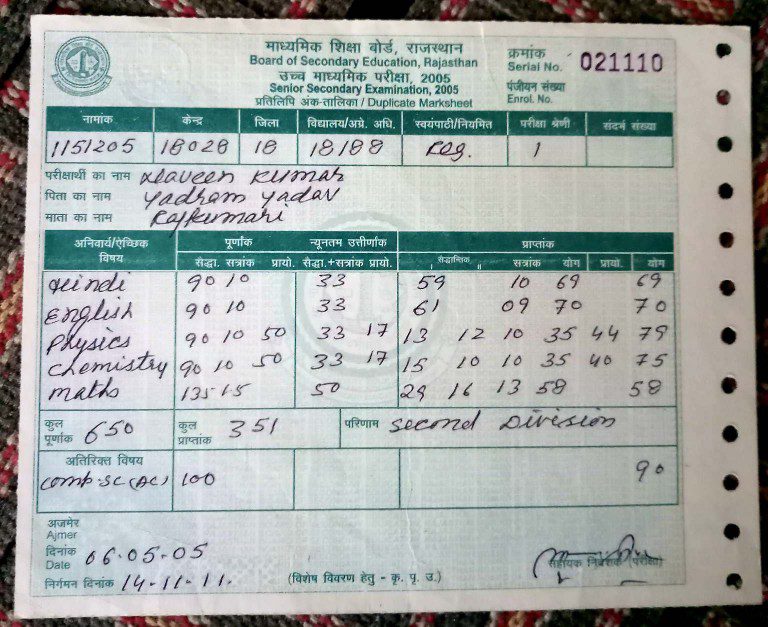 माध्यमिक शिक्षा बोर्ड, राजस्थान
Board of Secondary Education, Rajasthan
उच्च माध्यमिक परीक्षा, 2005
Senior Secondary Examination, 2005
प्रतिलिपि अंक-तालिका / Duplicate Marksheet
क्रमांक
Serial No. 021110
पंजीयन संख्या
Enrol. No.
नामांक केन्द्र जिला विद्यालय/अग्रे. अधि. स्वयंपाठी/नियमित परीक्षा श्रेणी संदर्भ संख्या
1151205 18028 18 18188 Reg. 1
परीक्षार्थी का नाम Naveen Kumar
पिता का नाम Yadram Yadav
माता का नाम Rajkumari
अनिवार्य/ऐच्छिक विषय पूर्णांक न्यूनतम उत्तीर्णांक प्राप्तांक
सैद्धा. सत्रांक प्रायो. सैद्धा.+सत्रांक प्रायो. I सैद्धान्तिक II सत्रांक योग प्रायो. योग
Hindi 90 10 33 59 10 69 69
English 90 10 33 61 09 70 70
Physics 90 10 50 33 17 13 12 10 35 44 79
Chemistry 90 10 50 33 17 15 10 10 35 40 75
Maths 135 15 50 29 16 13 58 58
कुल पूर्णांक 650 कुल प्राप्तांक 351 परिणाम Second Division
अतिरिक्त विषय
Comp.SC(AC) 100 90
अजमेर
Ajmer
दिनांक
Date 06.05.05
निर्गमन दिनांक 14-11-11.
(विशेष विवरण हेतु - कृ. पृ. उ.)
सहायक निदेशक (परीक्षा)